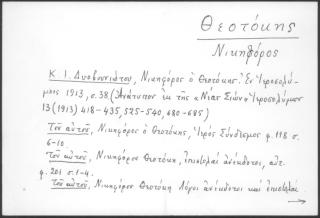 Θεοτόκης
Νικηφόρος
Κ. Ι. Δυοβουνιώτου, Νικηφόρος ὁ Θεοτόκης. Ἐν Ἱεροσολύ-
μοις 1913, σ. 38 (Ἀνάτυπον ἐκ τῆς «Νέας Σιών» Ἱεροσολύμων
13 (1913) 418-435, 525-540, 680-685)
Τοῦ αὐτοῦ, Νικηφόρος ὁ Θεοτόκης, Ἱερός Σύνδεσμος φ. 118 σ.
6-10.
Τοῦ αὐτοῦ, Νικηφόρου Θεοτόκη, ἐπιστολαί ἀνέκδοτοι,
φ. 201 σ. 1-4.
Τοῦ αὐτοῦ, Νικηφόρου Θεοτόκη Λόγοι ἀνέκδοτοι καί ἐπιστολαί
→